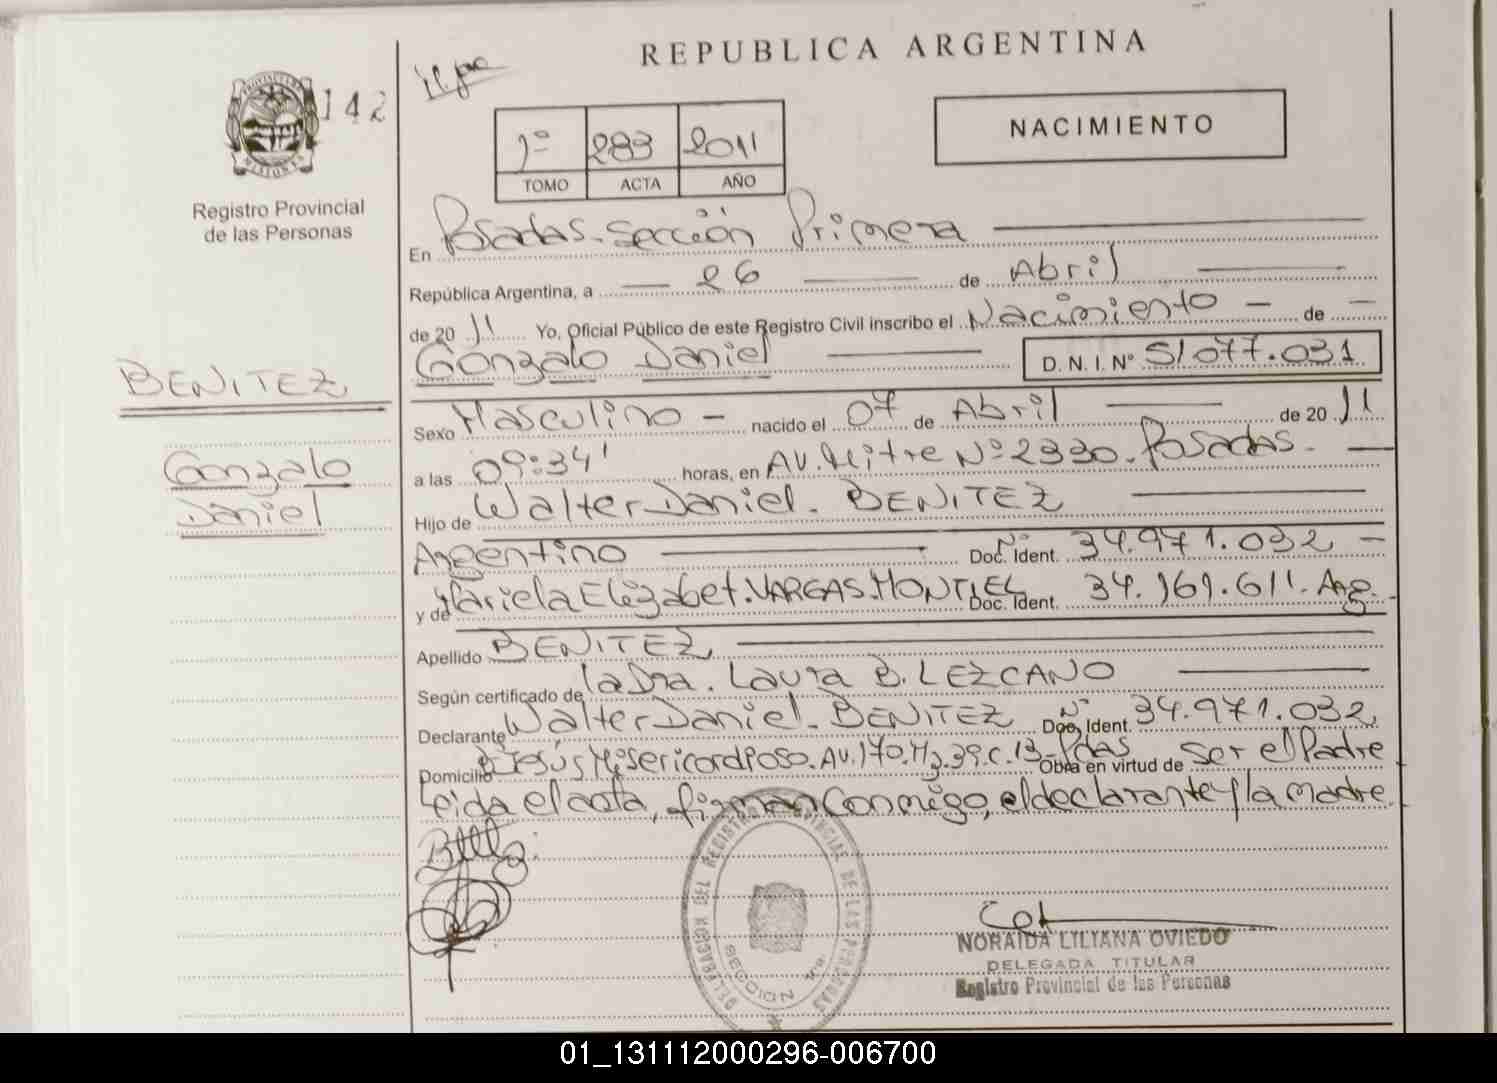 REPUBLICA ARGENTINA
142
1º 283 2011
TOMO ACTA AÑO
NACIMIENTO
Registro Provincial
de las Personas
En Posadas. Sección Primera
República Argentina, a 26 de Abril
de 2011 Yo, Oficial Público de este Registro Civil inscribo el Nacimiento - de -
Gonzalo Daniel D. N. I. Nº 51.077.031
BENITEZ
Gonzalo
Daniel
Sexo Masculino - nacido el 07 de Abril de 2011
a las 09:34' horas, en AV. Mitre Nº 2330. Posadas.
Hijo de Walter Daniel. BENITEZ
Argentino Doc. Ident. Nº 34.971.032 -
y de Mariela Elizabet. VARGAS MONTIEL Doc. Ident. 34.161.611. Arg.
Apellido BENITEZ
Según certificado de la Dra. Laura B. LEZCANO
Declarante Walter Daniel. BENITEZ Doc. Ident. Nº 34.971.032
Domicilio Jesús Misericordioso. AV. 170. Mz. 39. C. 13 - Pdas Obra en virtud de ser el Padre
Leida el acta, firman conmigo, el declarante y la madre.
DELEGACION DEL REGISTRO PROVINCIAL DE LAS PERSONAS
SECCION 1ra.
NORAIDA LILIANA OVIEDO
DELEGADA TITULAR
Registro Provincial de las Personas
01_131112000296-006700